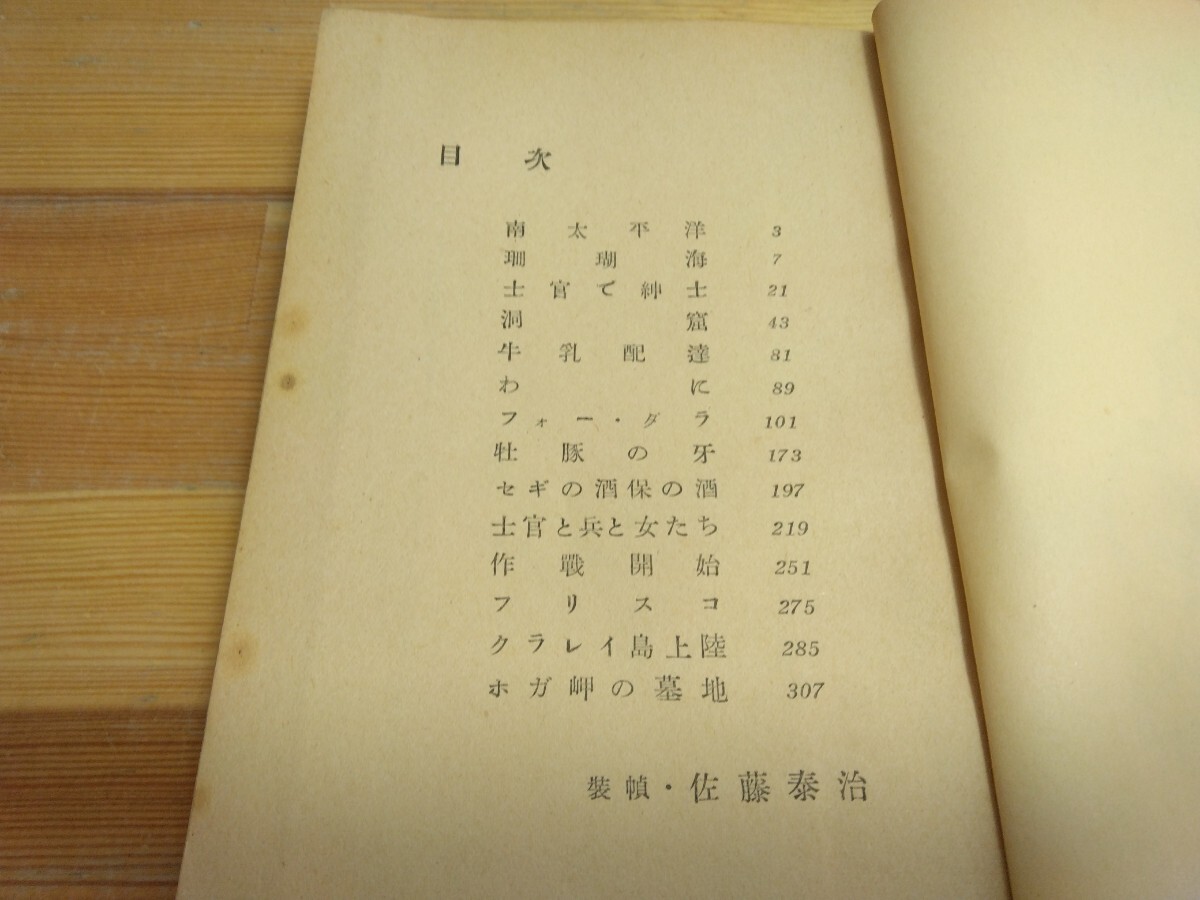 目次
南太平洋 3
珊瑚海 7
士官で紳士 21
洞窟 43
牛乳配達 81
わに 89
フォー・ダラ 101
牡豚の牙 173
セギの酒保の酒 197
士官と兵と女たち 219
作戰開始 251
フリスコ 275
クラレイ島上陸 285
ホガ岬の墓地 307
裝幀・佐藤泰治